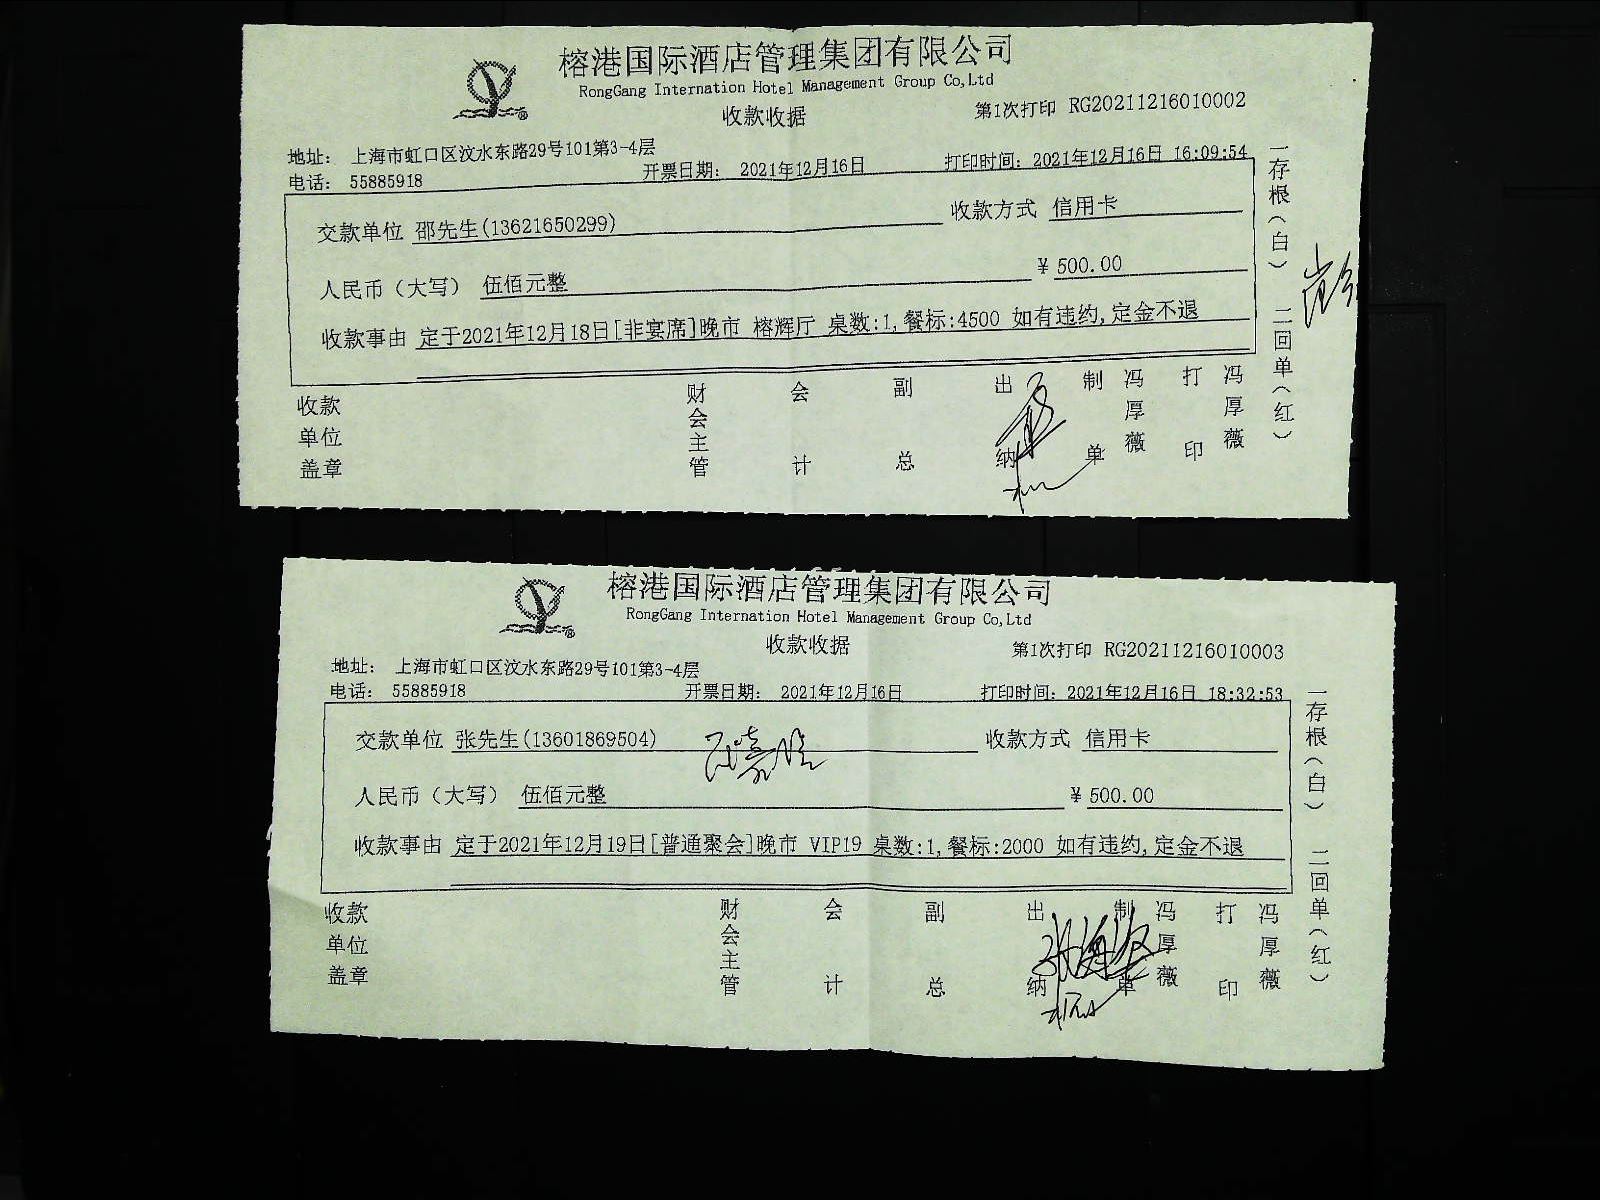 榕港国际酒店管理集团有限公司
RongGang Internation Hotel Management Group Co,Ltd
收款收据
第1次打印 RG20211216010002
地址： 上海市虹口区汶水东路29号101第3-4层
电话： 55885918
开票日期： 2021年12月16日
打印时间：2021年12月16日 16:09:54
交款单位 邵先生(13621650299)
收款方式 信用卡
人民币（大写） 伍佰元整
￥500.00
收款事由 定于2021年12月18日[非宴席]晚市 榕辉厅 桌数:1,餐标:4500 如有违约,定金不退
收款单位盖章
财会主管
会计
副总
出纳
制单 冯厚薇
打印 冯厚薇
一存根（白） 二回单（红）
榕港国际酒店管理集团有限公司
RongGang Internation Hotel Management Group Co,Ltd
收款收据
第1次打印 RG20211216010003
地址： 上海市虹口区汶水东路29号101第3-4层
电话： 55885918
开票日期： 2021年12月16日
打印时间：2021年12月16日 18:32:53
交款单位 张先生(13601869504)
收款方式 信用卡
人民币（大写） 伍佰元整
￥500.00
收款事由 定于2021年12月19日[普通聚会]晚市 VIP19 桌数:1,餐标:2000 如有违约,定金不退
收款单位盖章
财会主管
会计
副总
出纳
制单 冯厚薇
打印 冯厚薇
一存根（白） 二回单（红）